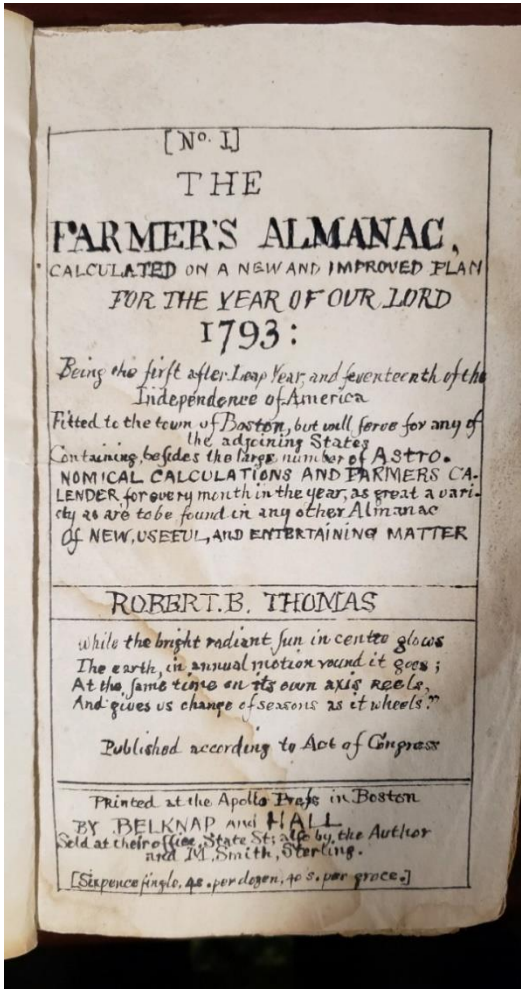 [No. I]
THE
FARMER'S ALMANAC,
CALCULATED ON A NEW AND IMPROVED PLAN
FOR THE YEAR OF OUR LORD
1793:
Being the firſt after Leap Year, and ſeventeenth of the
Independence of America
Fitted to the town of Boston, but will ſerve for any of
the adjoining States
Containing, beſides the large number of ASTRO-
NOMICAL CALCULATIONS AND FARMERS CA-
LENDER for every month in the year, as great a vari-
ety as are to be found in any other Almanac
Of NEW, USEFUL, AND ENTERTAINING MATTER
ROBERT. B. THOMAS
while the bright radiant ſun in centre glows
The earth, in annual motion round it goes;
At the ſame time on its own axis reels,
And gives us change of seasons as it wheels."
Published according to Act of Congress
Printed at the Apollo Preſs in Boston
BY BELKNAP and HALL
Sold at their office, State St; alſo by the Author
and M. Smith, Sterling.
[Sixpence ſingle, 4s. per dozen, 40 s. per groce.]